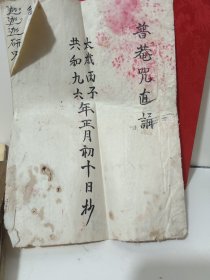 普菴咒直講
太歲丙子
共和九六年正月初十日抄